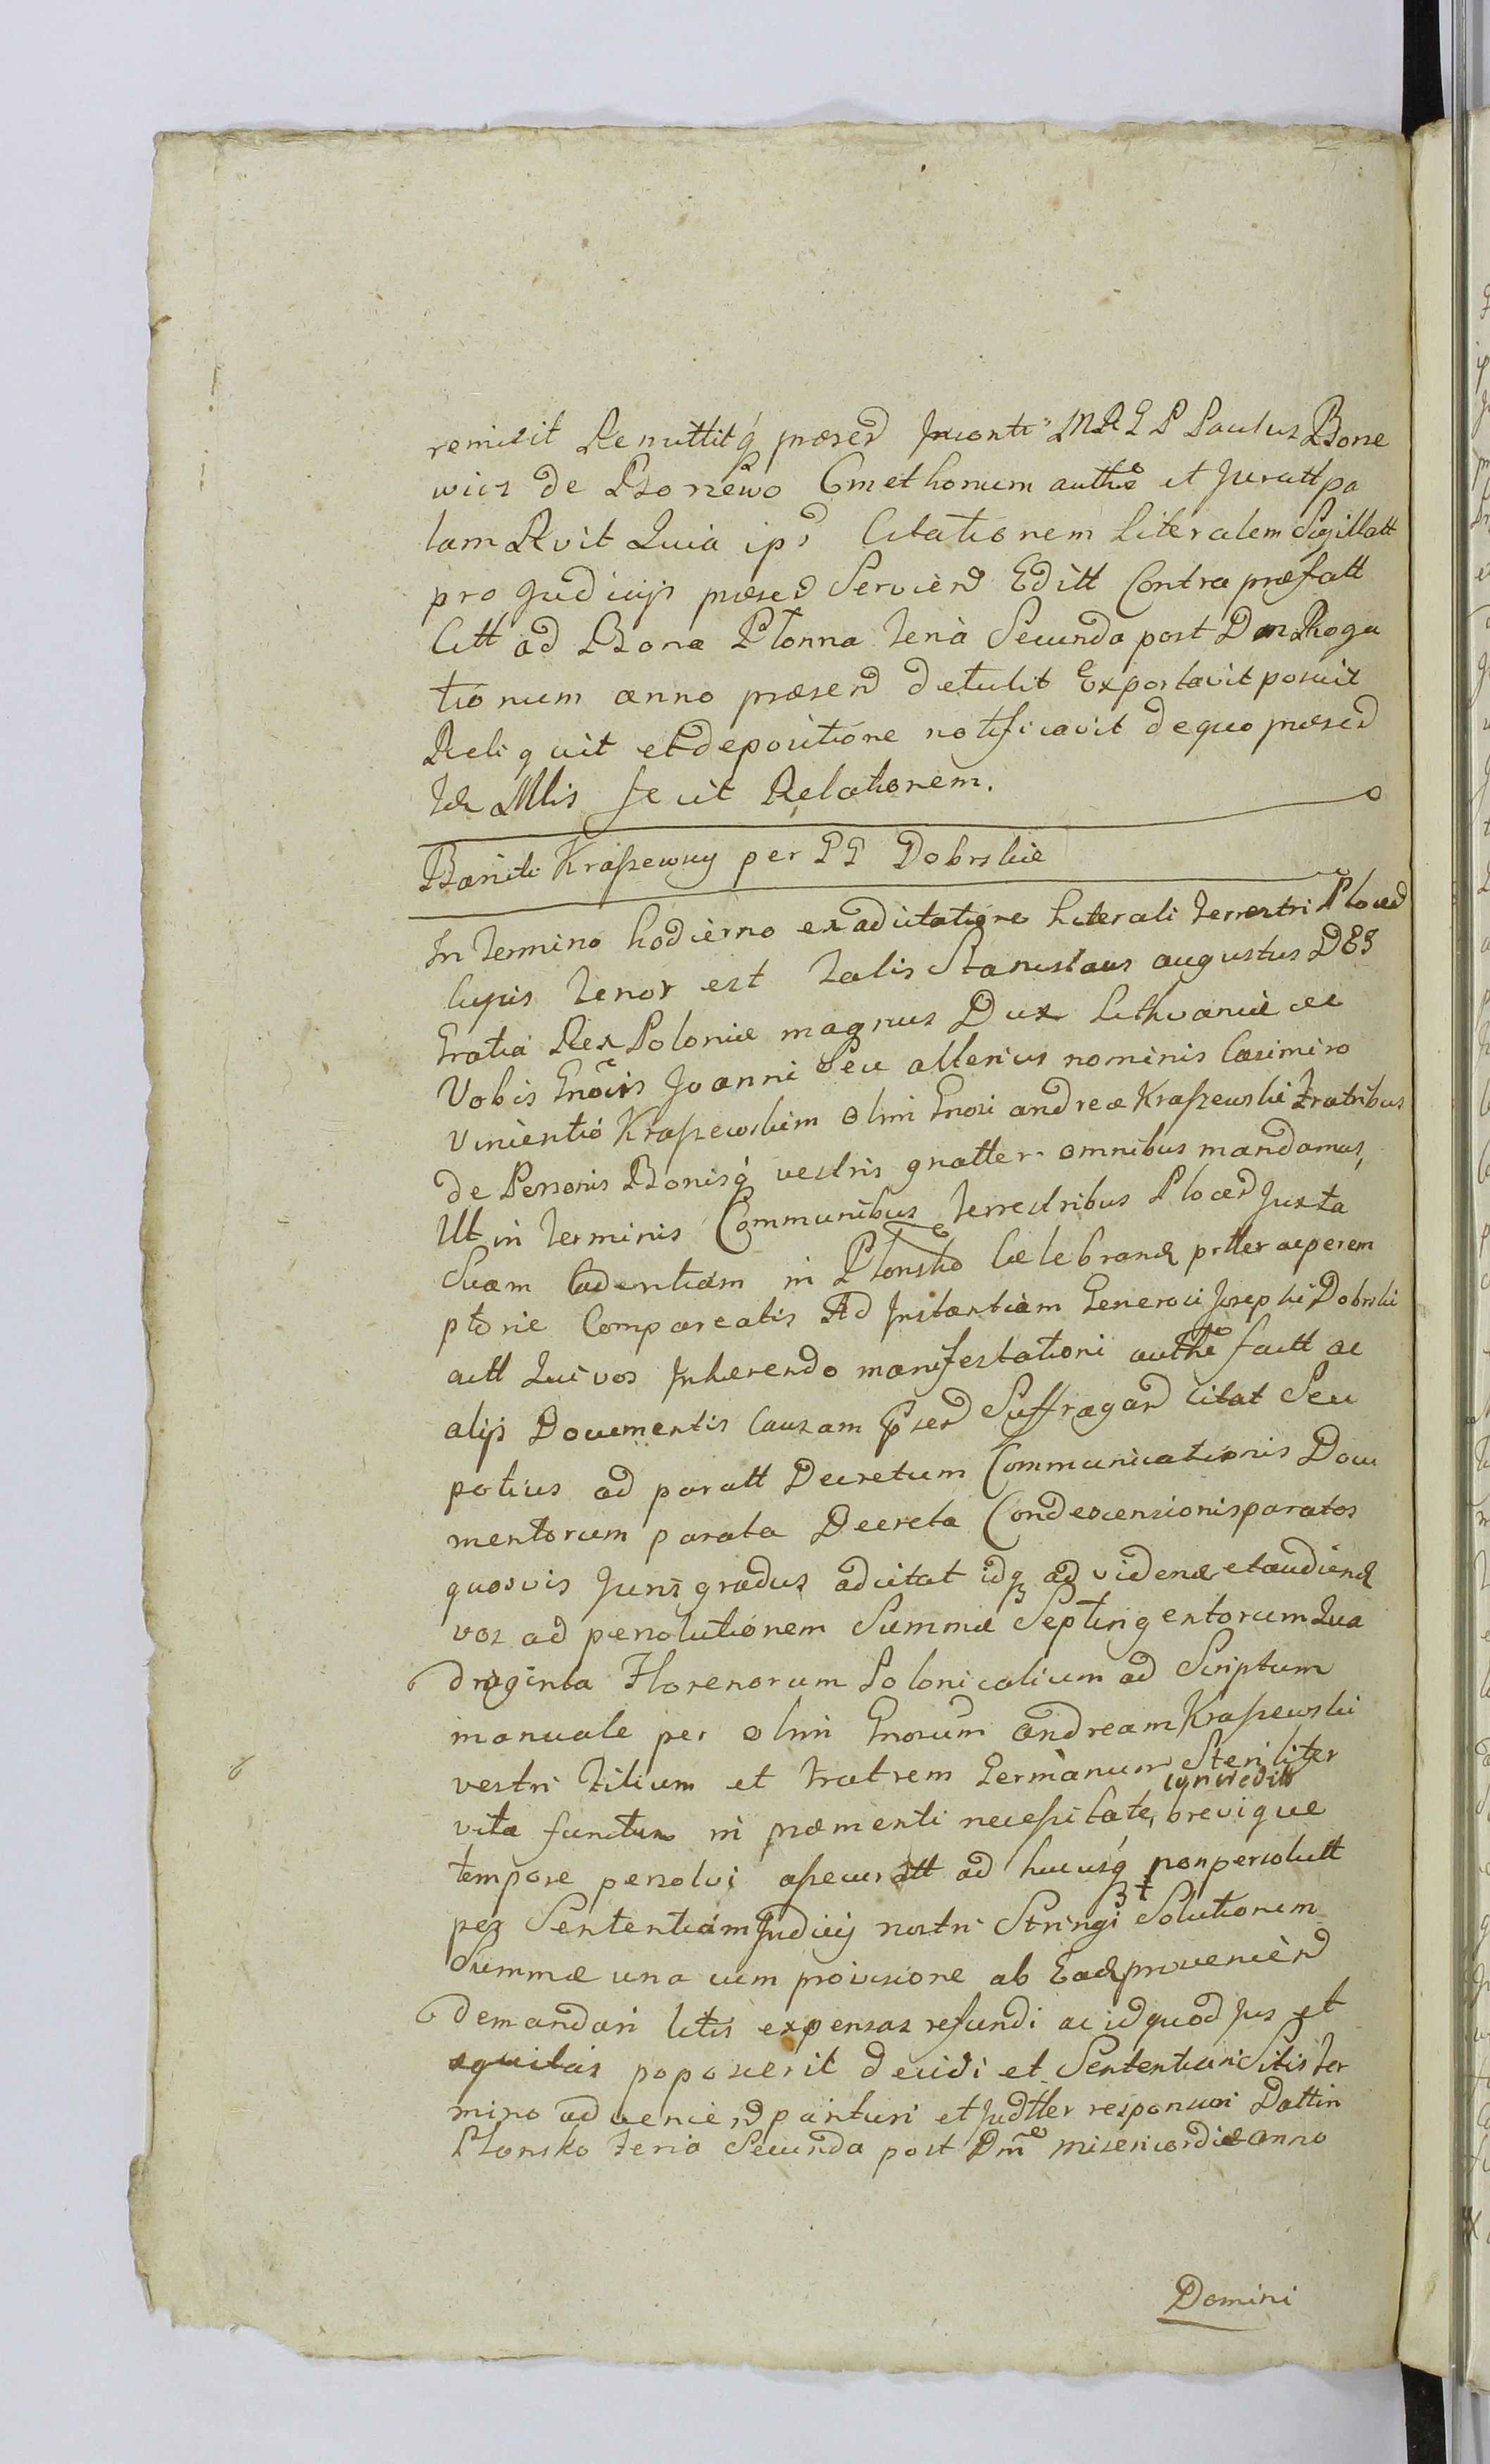 remisit Remittitq́ præsend MRGP Paulus Bone
wicz de Bonewo Cmethonum authe et Juratt pa
lam Rvit Quia ips Citationem Literalem Sigillatt
pro Judicijs præsed Serviend Editt Contra præfatt
Citt ad Bona Płonna Feria Secunda post Don Roga
tionum anno præsend detulit Exportavit posuit
Reliquit et depositione notificavit de quo præsed
Idr Mlis fecit Relationem.
Baniti Kraszewscy per PP Dobrskie
In Termino hodierno ex adcitatione Literali Terrestri Ploced
Cujus Tenor est Talis Stanislaus augustus DEI
Gratia Rex Poloniæ magnus Dux Lithvaniæ ec
Vobis Gnosis Joanni Seu alterius nominis Casimiro
Vincentio Kraszewskim olim Gnosi andreæ Kraszewski Fratribus
de Personis Bonisq́ vestris gnatter omnibus mandamus,
Ut in Terminis Communibus Terrestribus Ploced Juxta
Suam Cadentiam in Płonsko Celebrand prtter ac perem
ptorie Compareatis Ad Instantiam Generosi Josephi Dobrski
actt Qui vos Inherendo manifestationi authe factt ac
alijs Documentis Causam Suffragand Citat Seu
potius ad paratt Decretum Communicationis Docu
mentorum parata Decreta Condescensionis paratos
quosvis Juris gradus adcitat idq ad vidend et audiend
vos ad persolutionem Summæ Septingentorum Qua
draginta Florenorum Polonicalium ad Scriptum
manuale per olim Gnosum andream Kraszewski
vestri Filium et Fratrem Germanum Steriliter
vita functum in præmenti necessitate, concreditt brevique
tempore persolvi assecuratt ad hucusq́ non persolutt
per Sententiam Judicij nostri Stringi Solutionem
Summæ una cum provisione ab Ead proveniend
demandari litis expensas refundi ac id quod Jus et
æquitas poposcerit decidi et Sententiari Sitis Ter
mino adveniend parituri et Judtler responsuri Dattin
Płonsko Feria Secunda post Dmē misericordiæ anno
Domini